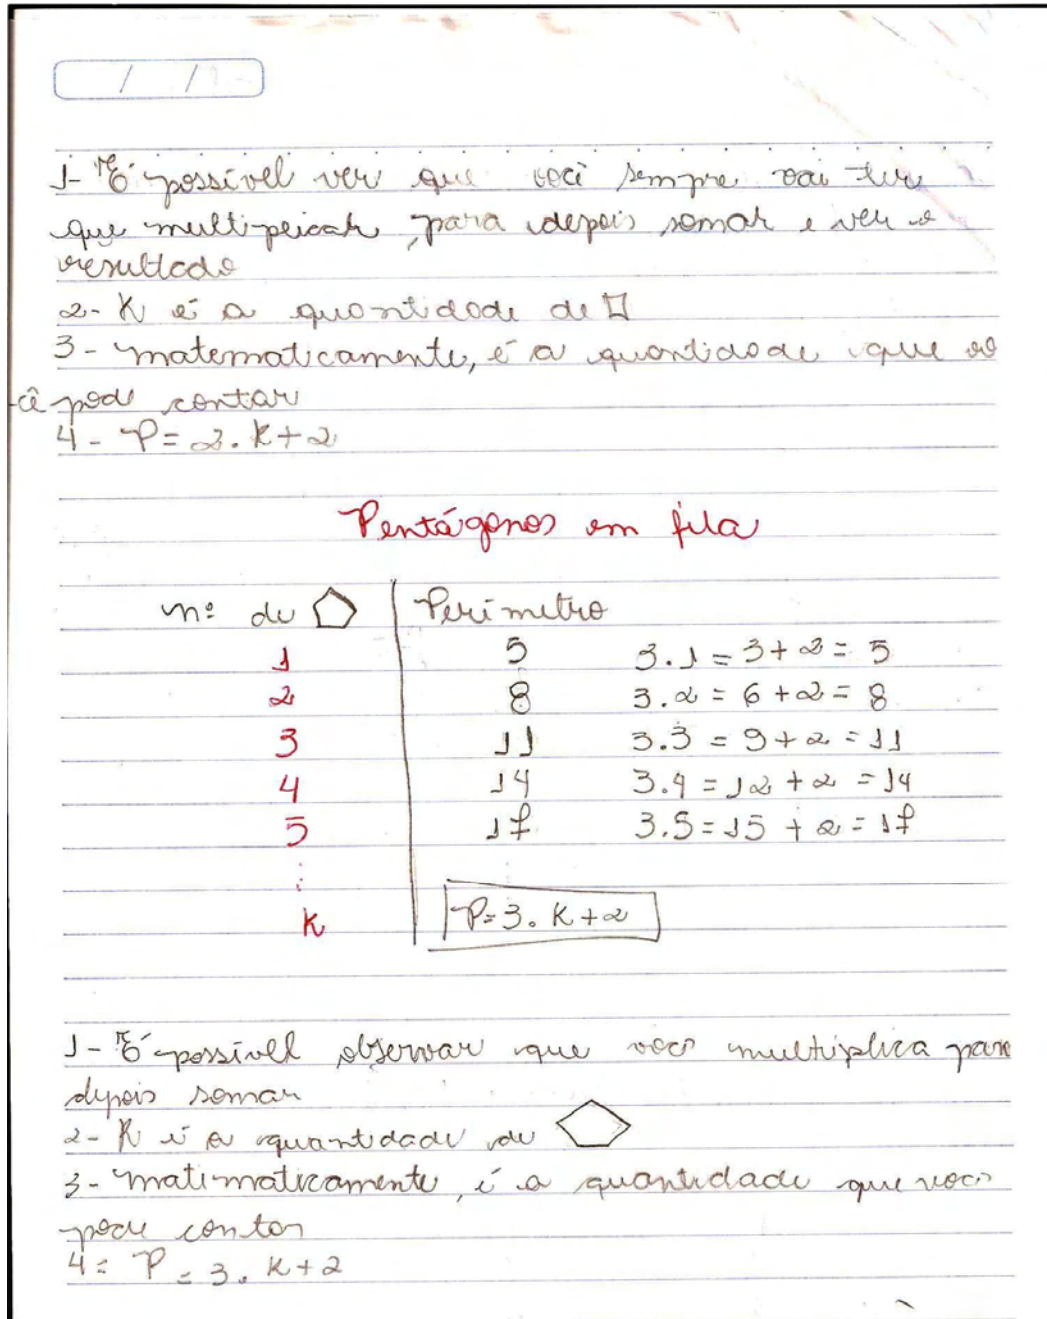 / /
1- É possível ver que você sempre vai ter
que multipeicar, para depois somar e ver o
resultado
2- K é a quantidade de
3- matematicamente, é a quantidade que vo
cê pode contar
4- P = 2. K + 2
Pentágonos em fila
nº de Perímetro
1 5 3.1 = 3 + 2 = 5
2 8 3.2 = 6 + 2 = 8
3 11 3.3 = 9 + 2 = 11
4 14 3.4 = 12 + 2 = 14
5 17 3.5 = 15 + 2 = 17
K P = 3. K + 2
1- É possível observar que você multiplica para
depois somar
2- K é a quantidade de
3- matematicamente, é a quantidade que você
pode contar
4 = P = 3. K + 2